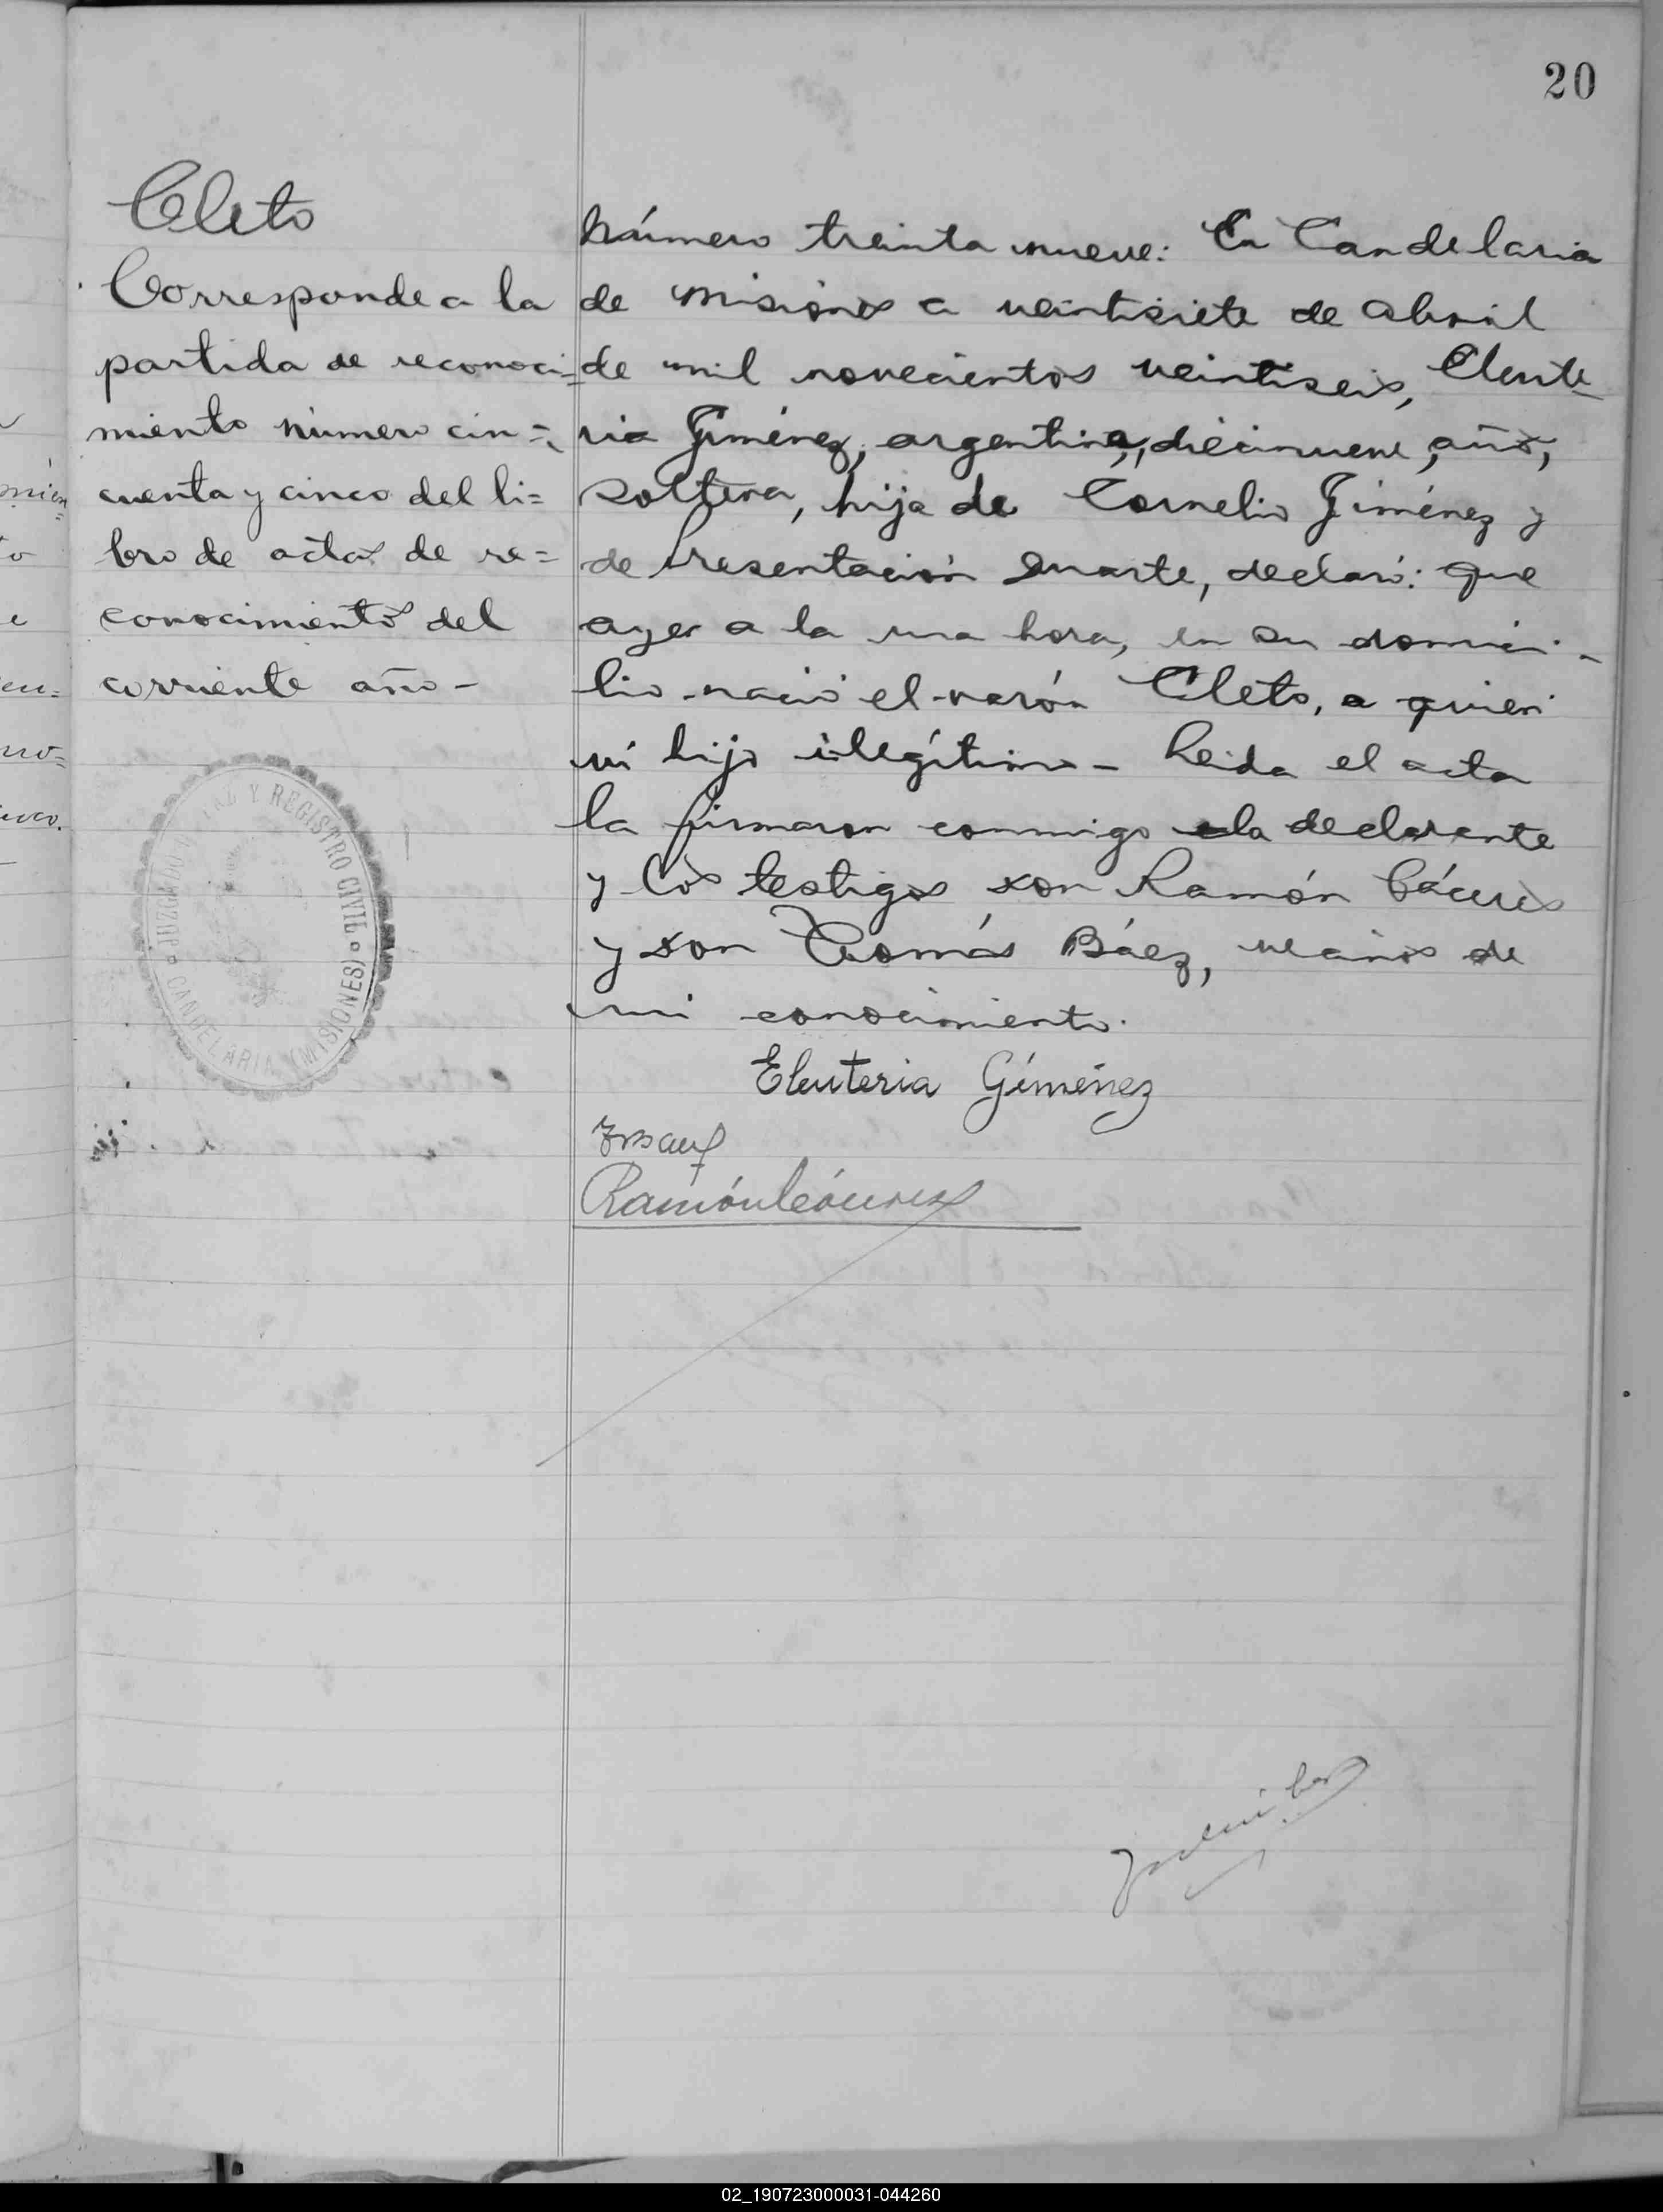 20
Cleto
Corresponde a la
partida de reconoci=
miento número cin=
cuenta y cinco del li=
bro de actas de re=
conocimientos del
corriente año -
JUZGADO DE PAZ Y REGISTRO CIVIL
CANDELARIA (MISIONES)
Número treinta nueve: En Candelaria
de Misiones a veintisiete de Abril
de mil novecientos veintiseis, Eleute_
ria Giménez, argentina, diecinueve, años,
soltera, hija de Cornelio Giménez y
de Presentación Duarte, declaró: que
ayer a la una hora, en su domici-
lio nació el varón Cleto, a quien
vi hijo ilegítimo - Leida el acta
la firmaron conmigo la declarante
y los testigos don Ramón Cáceres
y don Tomás Báez, vecinos de
mi conocimiento.
Eleuteria Giménez
Ramón Cáceres
02_190723000031-044260